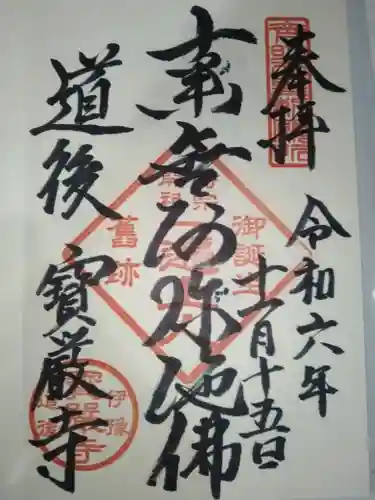 奉拝
令和六年
十一月十五日
南無阿弥陀佛
御誕生
舊跡
道後 寳厳寺
伊豫
道後